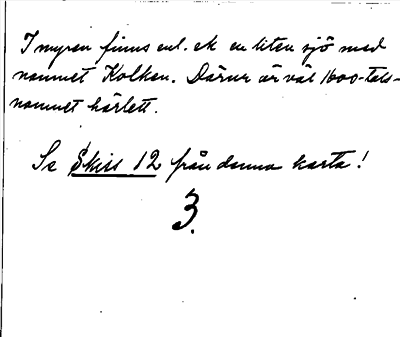 I myren finns enl. ek en liten sjö med
namnet Kolken. Därur är väl 1600-tals-
namnet härlett.
Se Skiss 12 från denna karta!
3.